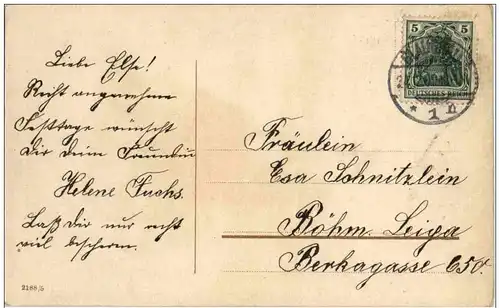 Liebe Else!
Recht angenehme
Festtage wünscht
Dir Deine Freundin
Helene Fuchs.
Laß Dir nur recht
viel bescheren.
5 5
DEUTSCHES REICH
* 1 n.
Fräulein
Esa Schnitzlein
Böhm. Leipa
Berkagasse 650.
2188/5